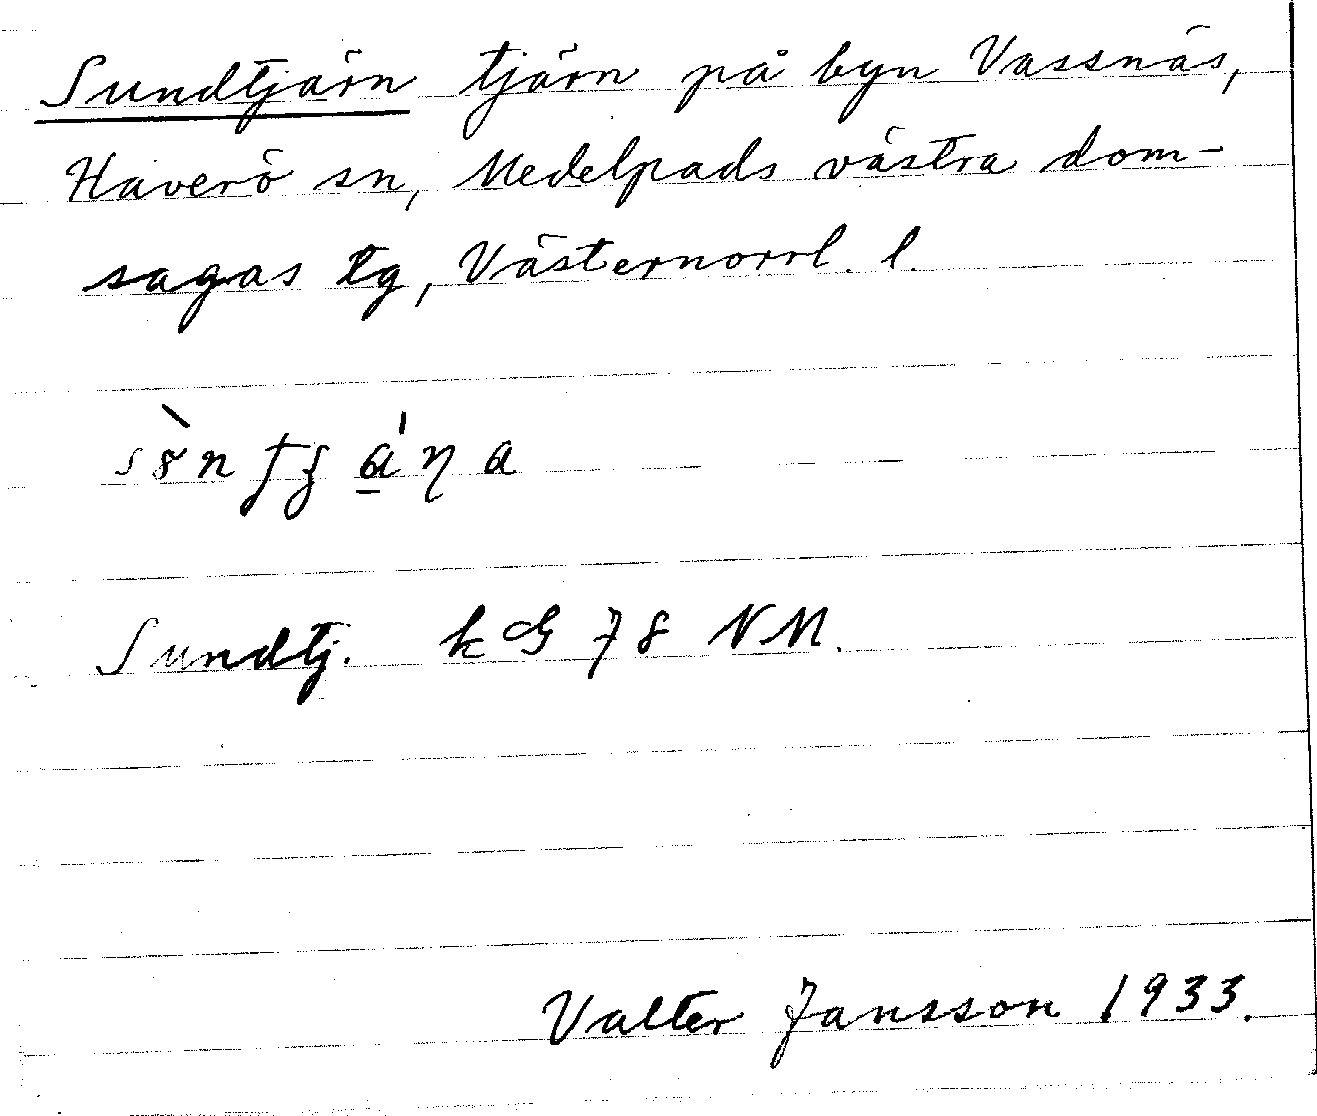 Sundtjärn tjärn på byn Vassnäs,
Haverö sn, Medelpads västra dom-
sagas tg, Västernorrl. l.
Sundtj. k G 78 NM.
Valter Jansson 1933.